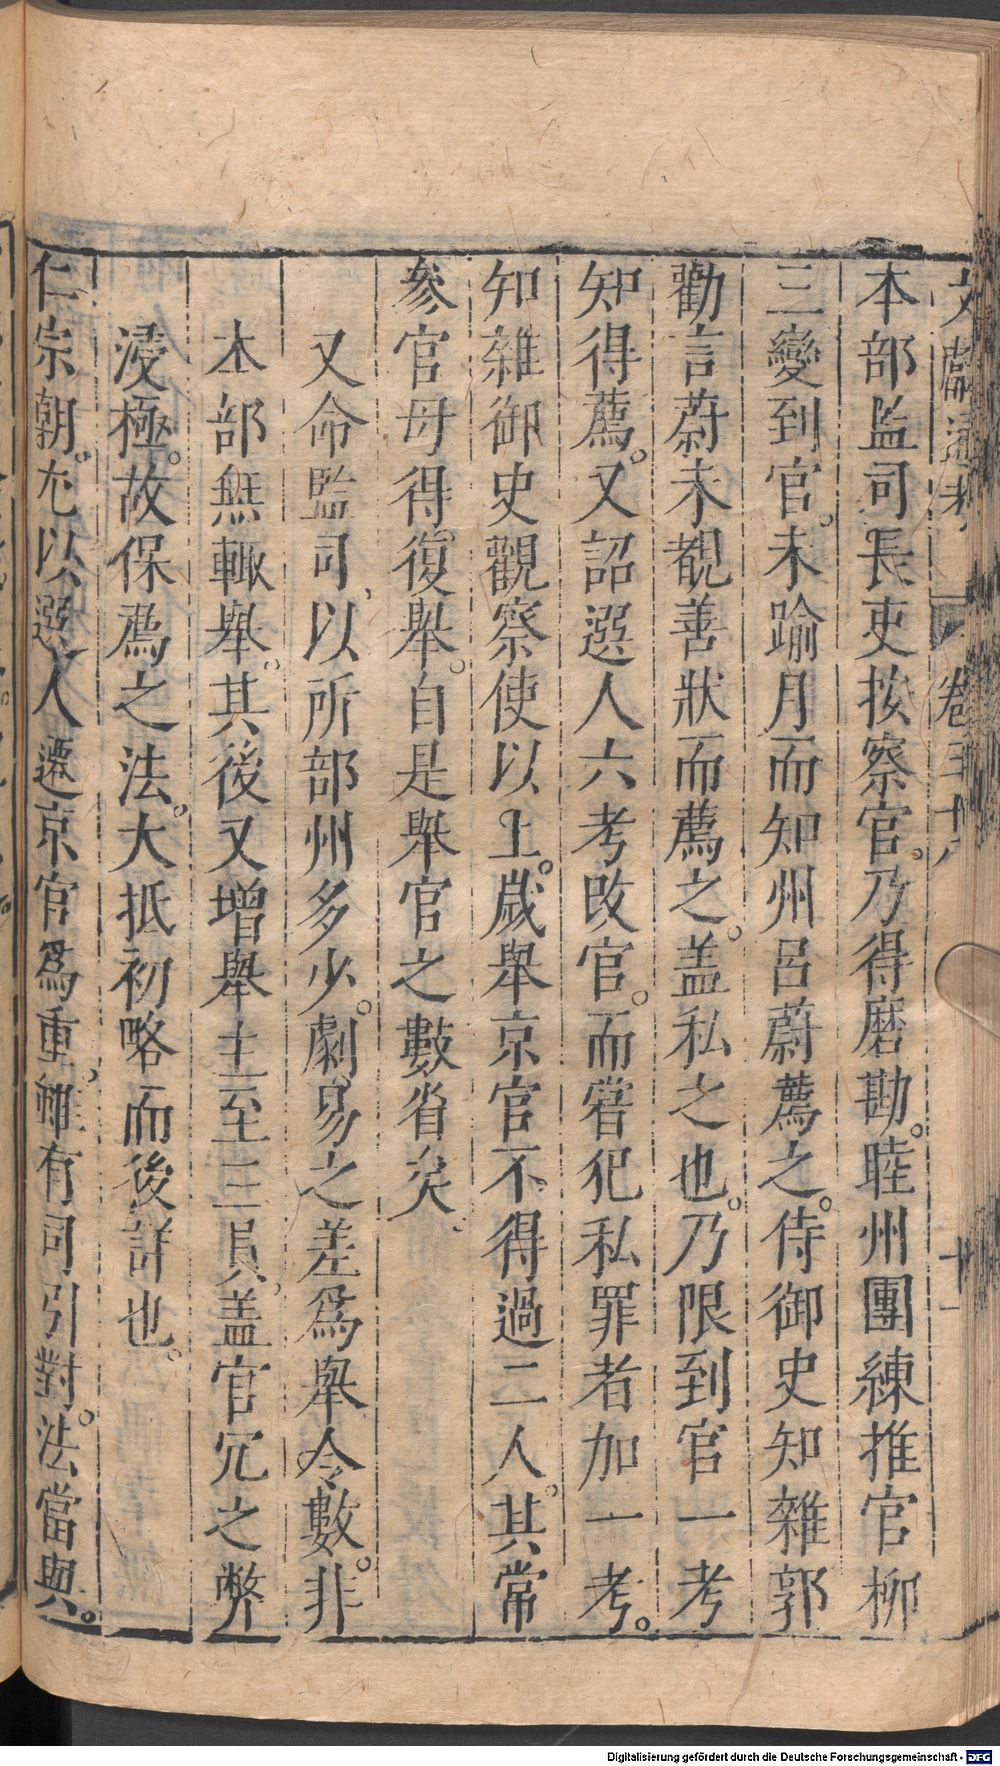 文獻通考 卷三十八 十一
本部監司長吏按察官。乃得磨勘。睦州團練推官柳
三變到官。未踰月而知州呂蔚薦之。侍御史知雜郭
勸言蔚未覩善狀而薦之。盖私之也。乃限到官一考
知得薦。又詔選人六考改官。而甞犯私罪者加一考。
知雜御史觀察使以上。歲舉京官不得過二人。其常
參官毋得復舉。自是舉官之數省矣、
又命監司、以所部州多少。劇易之差爲舉令數。非
本部無輙舉。其後又增舉主至三員、盖官冗之弊
浸極。故保薦之法。大抵初略而後詳也。
仁宗朝。尤以選人遷京官爲重、雖有司引對。法當與。
Digitalisierung gefördert durch die Deutsche Forschungsgemeinschaft - DFG